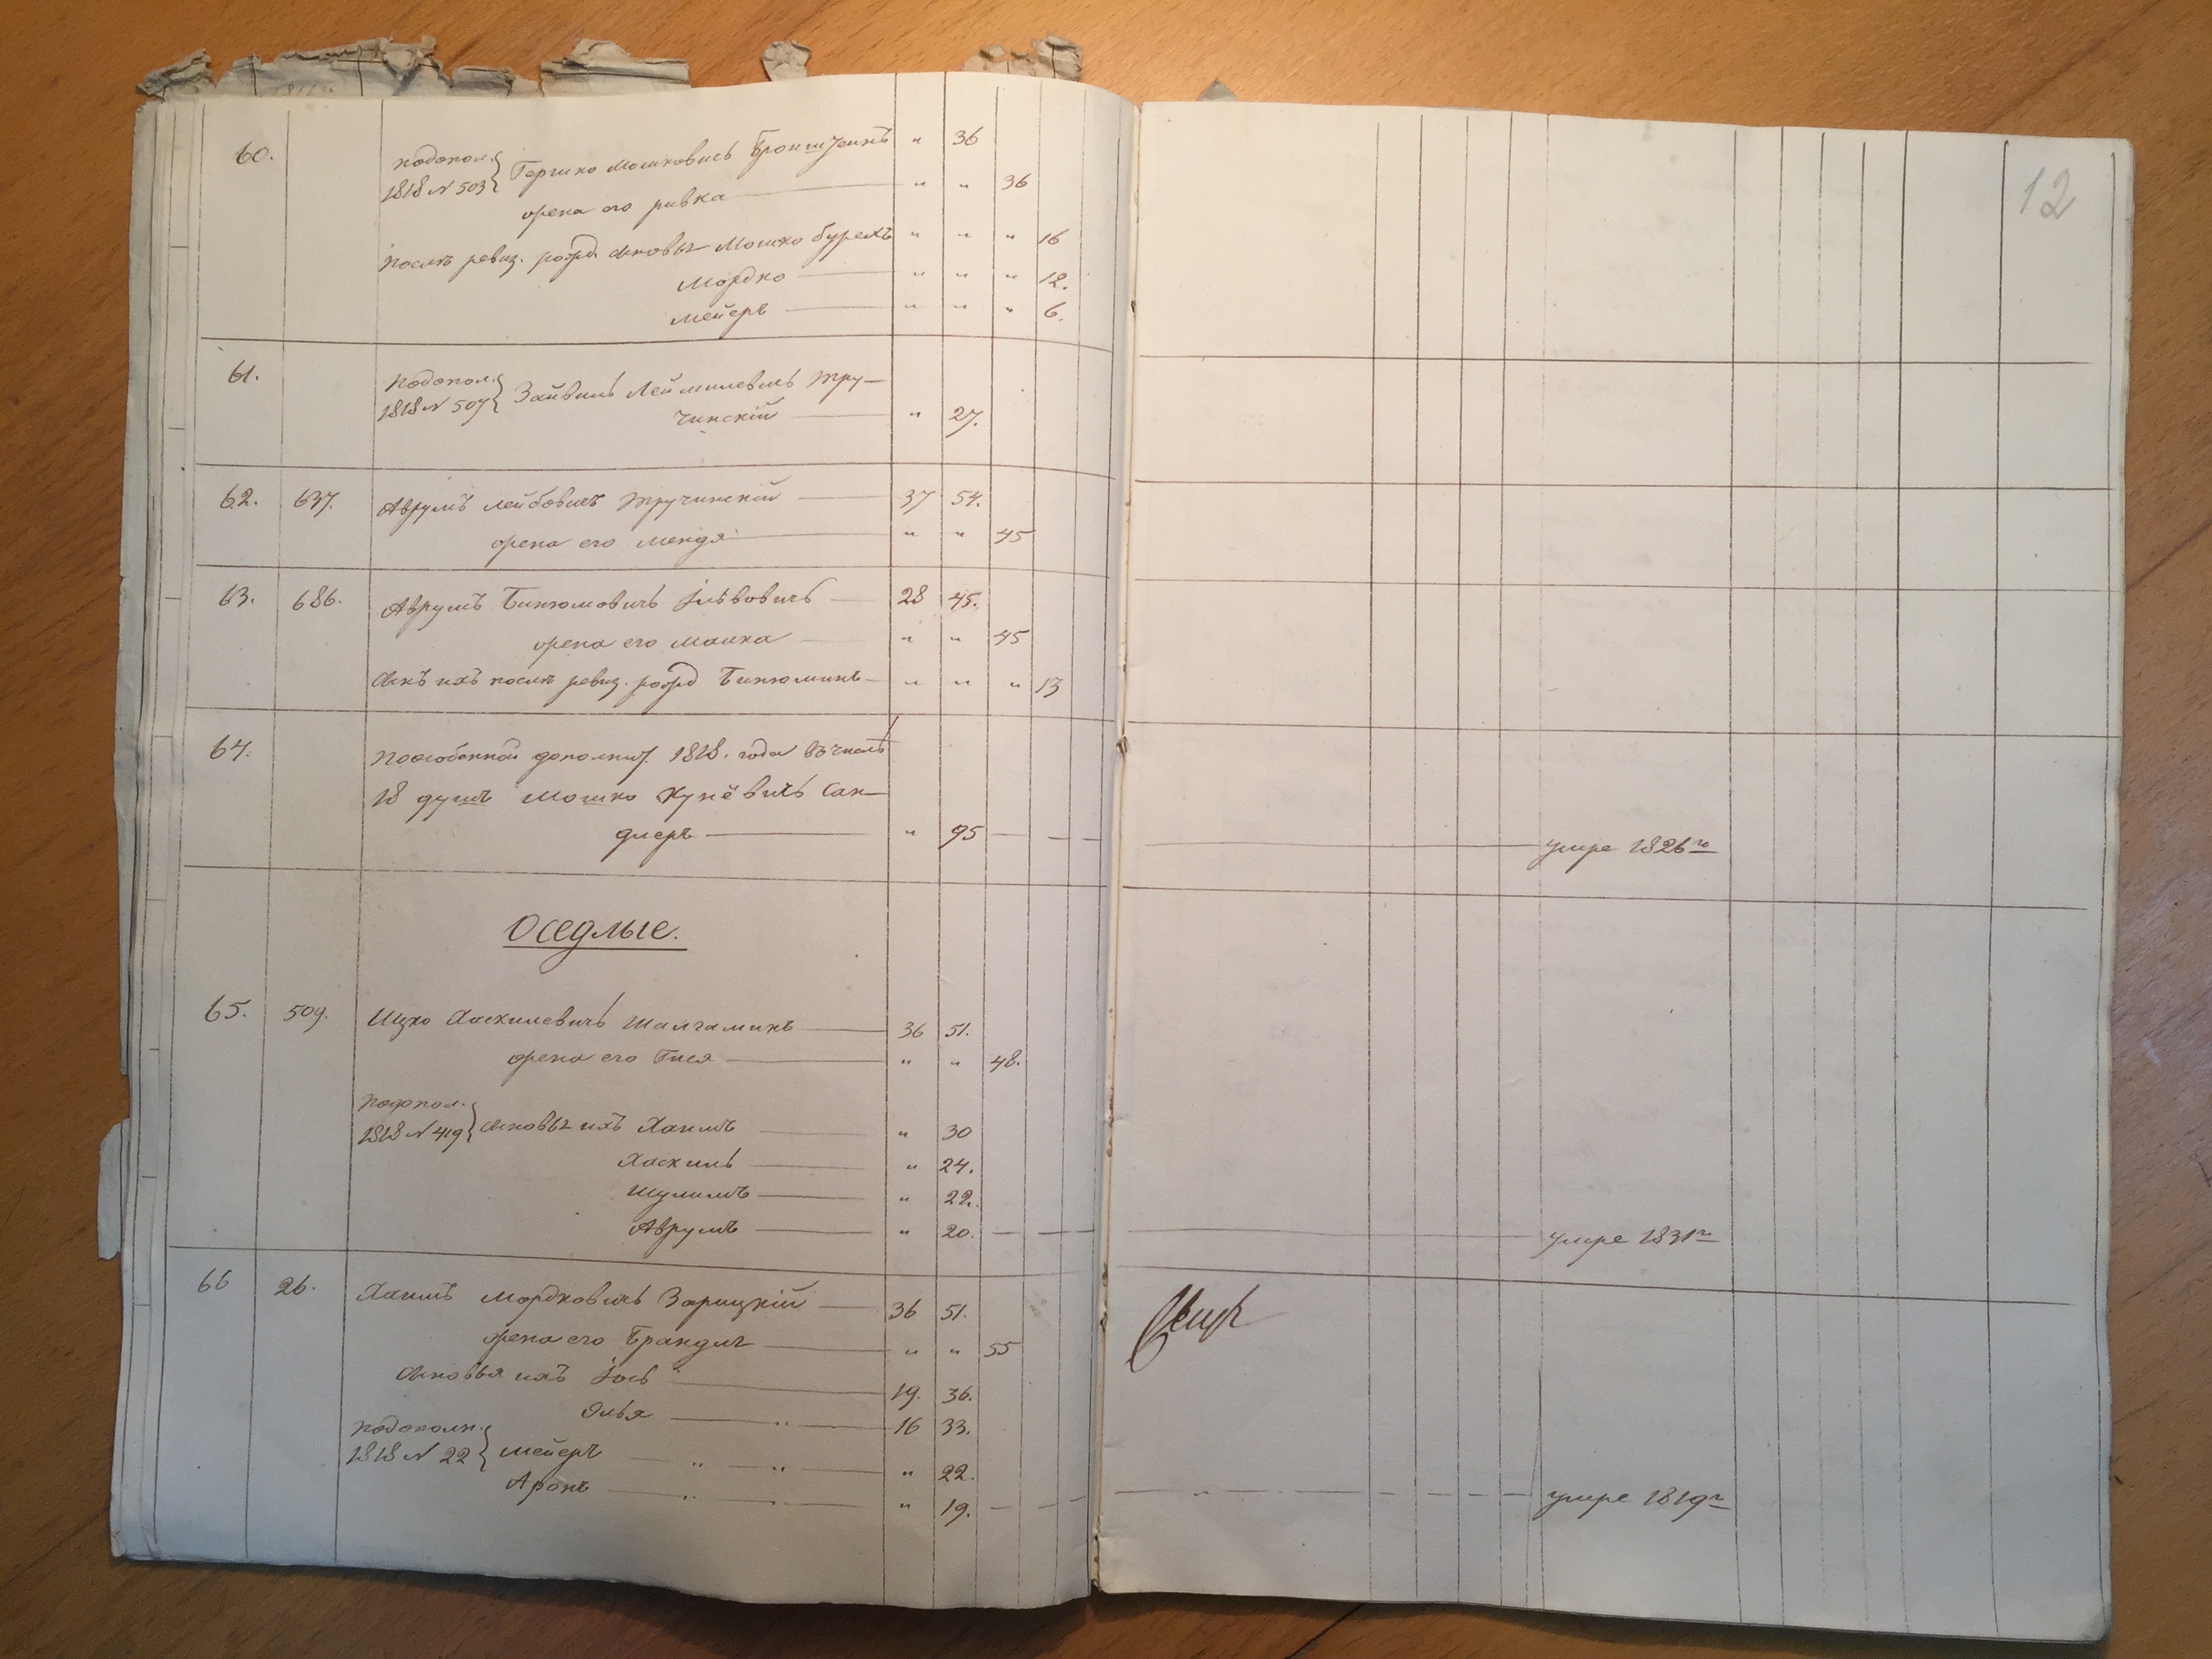 12
60. подопол. 1818 N 503 Гершко Мошковичъ Бронштеинъ " 36
жена его ривка " " 36
послѣ ревиз. рожд. сыновья Мошко бурехъ " " " 16
Мордко " " " 12.
Мейеръ " " " 6.
61. подопол. 1818 N 507 Зайвилъ
чинскій " 27.
62. 637. Аврумъ Лейбовичъ Тручинскій 37 54.
жена его Мендя " " 45
63. 686. Аврумъ Бинюмовичъ 28 45.
жена его Малка " " 45
сынъ ихъ послѣ ревиз. рожд Бинюминъ " " " 13
64. поособенной дополнит. 1818. года въ числѣ
18 душъ Мошко Сан-
длеръ " 95 умре 1826го
Оседлые.
65. 509. Ицко Хаскилевичъ 36 51.
жена его Бися " " 48.
подопол. 1818 N 419 сыновья ихъ Хаимъ " 30
Хаскиль " 24.
Шулимъ " 22.
Аврумъ " 20. умре 1831го
66 26. Хаимъ Мордковичъ Зарицкій 36 51.
жена его Брандля " " 55
сыновья ихъ Іось 19. 36.
Элья 16 33.
подополн. 1818 N 22 Мейеръ " 22.
Аронъ " 19. умре 1819го